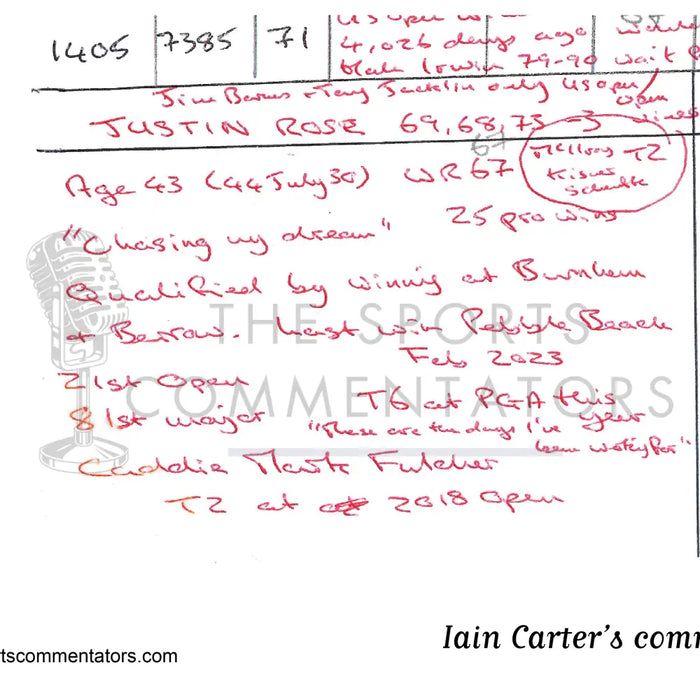 US Open w
1405 7385 71 4,026 days ago
blank Irwin 79-90 wait
Jim Barnes + Tony Jacklin only US Open/
Open
JUSTIN ROSE 69, 68, 73 -3 wins
67
McIlroy T2
Kisner
Schauffele
Age 43 (44 July 30) WR 67
25 pro wins
"Chasing my dream"
Qualified by winning at Burnham
+ Berrow. Last win Pebble Beach
Feb 2023
THE SPORTS
COMMENTATORS
21st Open
T6 at PGA this
81st major year
"These are the days I've
been working for"
Caddie Mark Fulcher
T2 at 2018 Open
Iain Carter's comm
rtscommentators.com